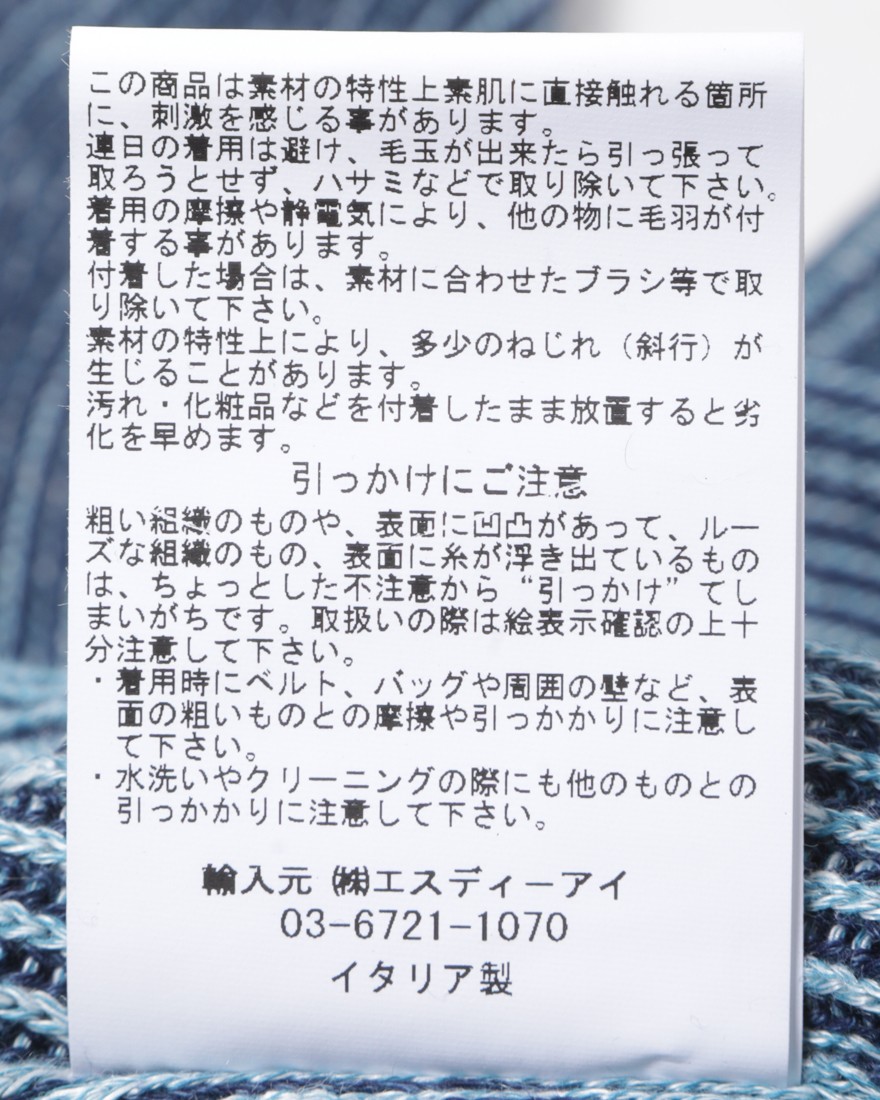 この商品は素材の特性上素肌に直接触れる箇所
に、刺激を感じる事があります。
連日の着用は避け、毛玉が出来たら引っ張って
取ろうとせず、ハサミなどで取り除いて下さい。
着用の摩擦や静電気により、他の物に毛羽が付
着する事があります。
付着した場合は、素材に合わせたブラシ等で取
り除いて下さい。
素材の特性上により、多少のねじれ（斜行）が
生じることがあります。
汚れ・化粧品などを付着したまま放置すると劣
化を早めます。
引っかけにご注意
粗い組織のものや、表面に凹凸があって、ルー
ズな組織のもの、表面に糸が浮き出ているもの
は、ちょっとした不注意から“引っかけ”てし
まいがちです。取扱いの際は絵表示確認の上十
分注意して下さい。
・着用時にベルト、バッグや周囲の壁など、表
面の粗いものとの摩擦や引っかかりに注意し
て下さい。
・水洗いやクリーニングの際にも他のものとの
引っかかりに注意して下さい。
輸入元 ㈱エスディーアイ
03-6721-1070
イタリア製